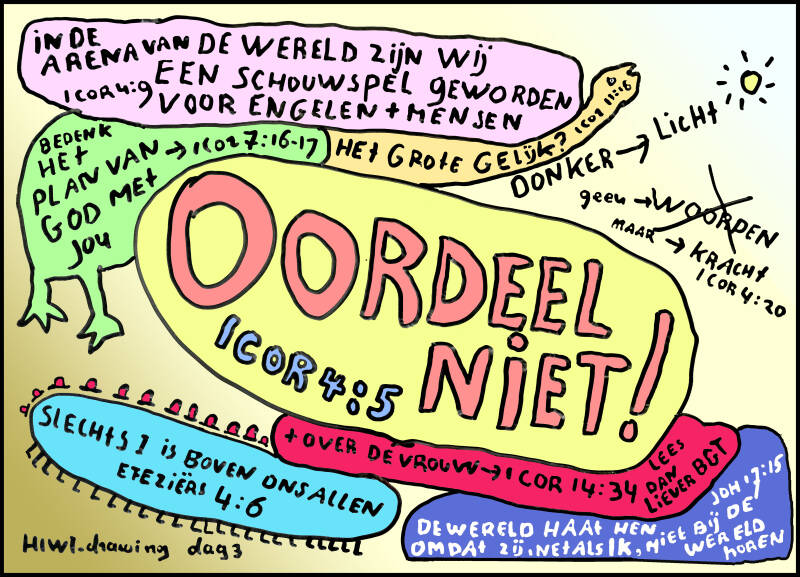 IN DE
ARENA VAN DE WERELD ZIJN WIJ
EEN SCHOUWSPEL GEWORDEN
1COR 4:9 VOOR ENGELEN + MENSEN
BEDENK
HET
PLAN VAN → 1COR 7:16-17
GOD MET
JOU
HET GROTE GELIJK? 1COR 11:16
DONKER → LICHT
geen → WOORDEN
MAAR → KRACHT
1COR 4:20
OORDEEL
NIET!
1COR 4:5
SLECHTS 1 iS BOVEN ONS ALLEN
EFEZIËRS 4:6
+ OVER DE VROUW → 1COR 14:34
LEES
DAN
LIEVER BGT
JOH 17:15
DE WERELD HAAT HEN
OMDAT ZIJ, NET ALS IK, NIET BIJ DE
WERELD
HOREN
HIWI.drawing dag 3